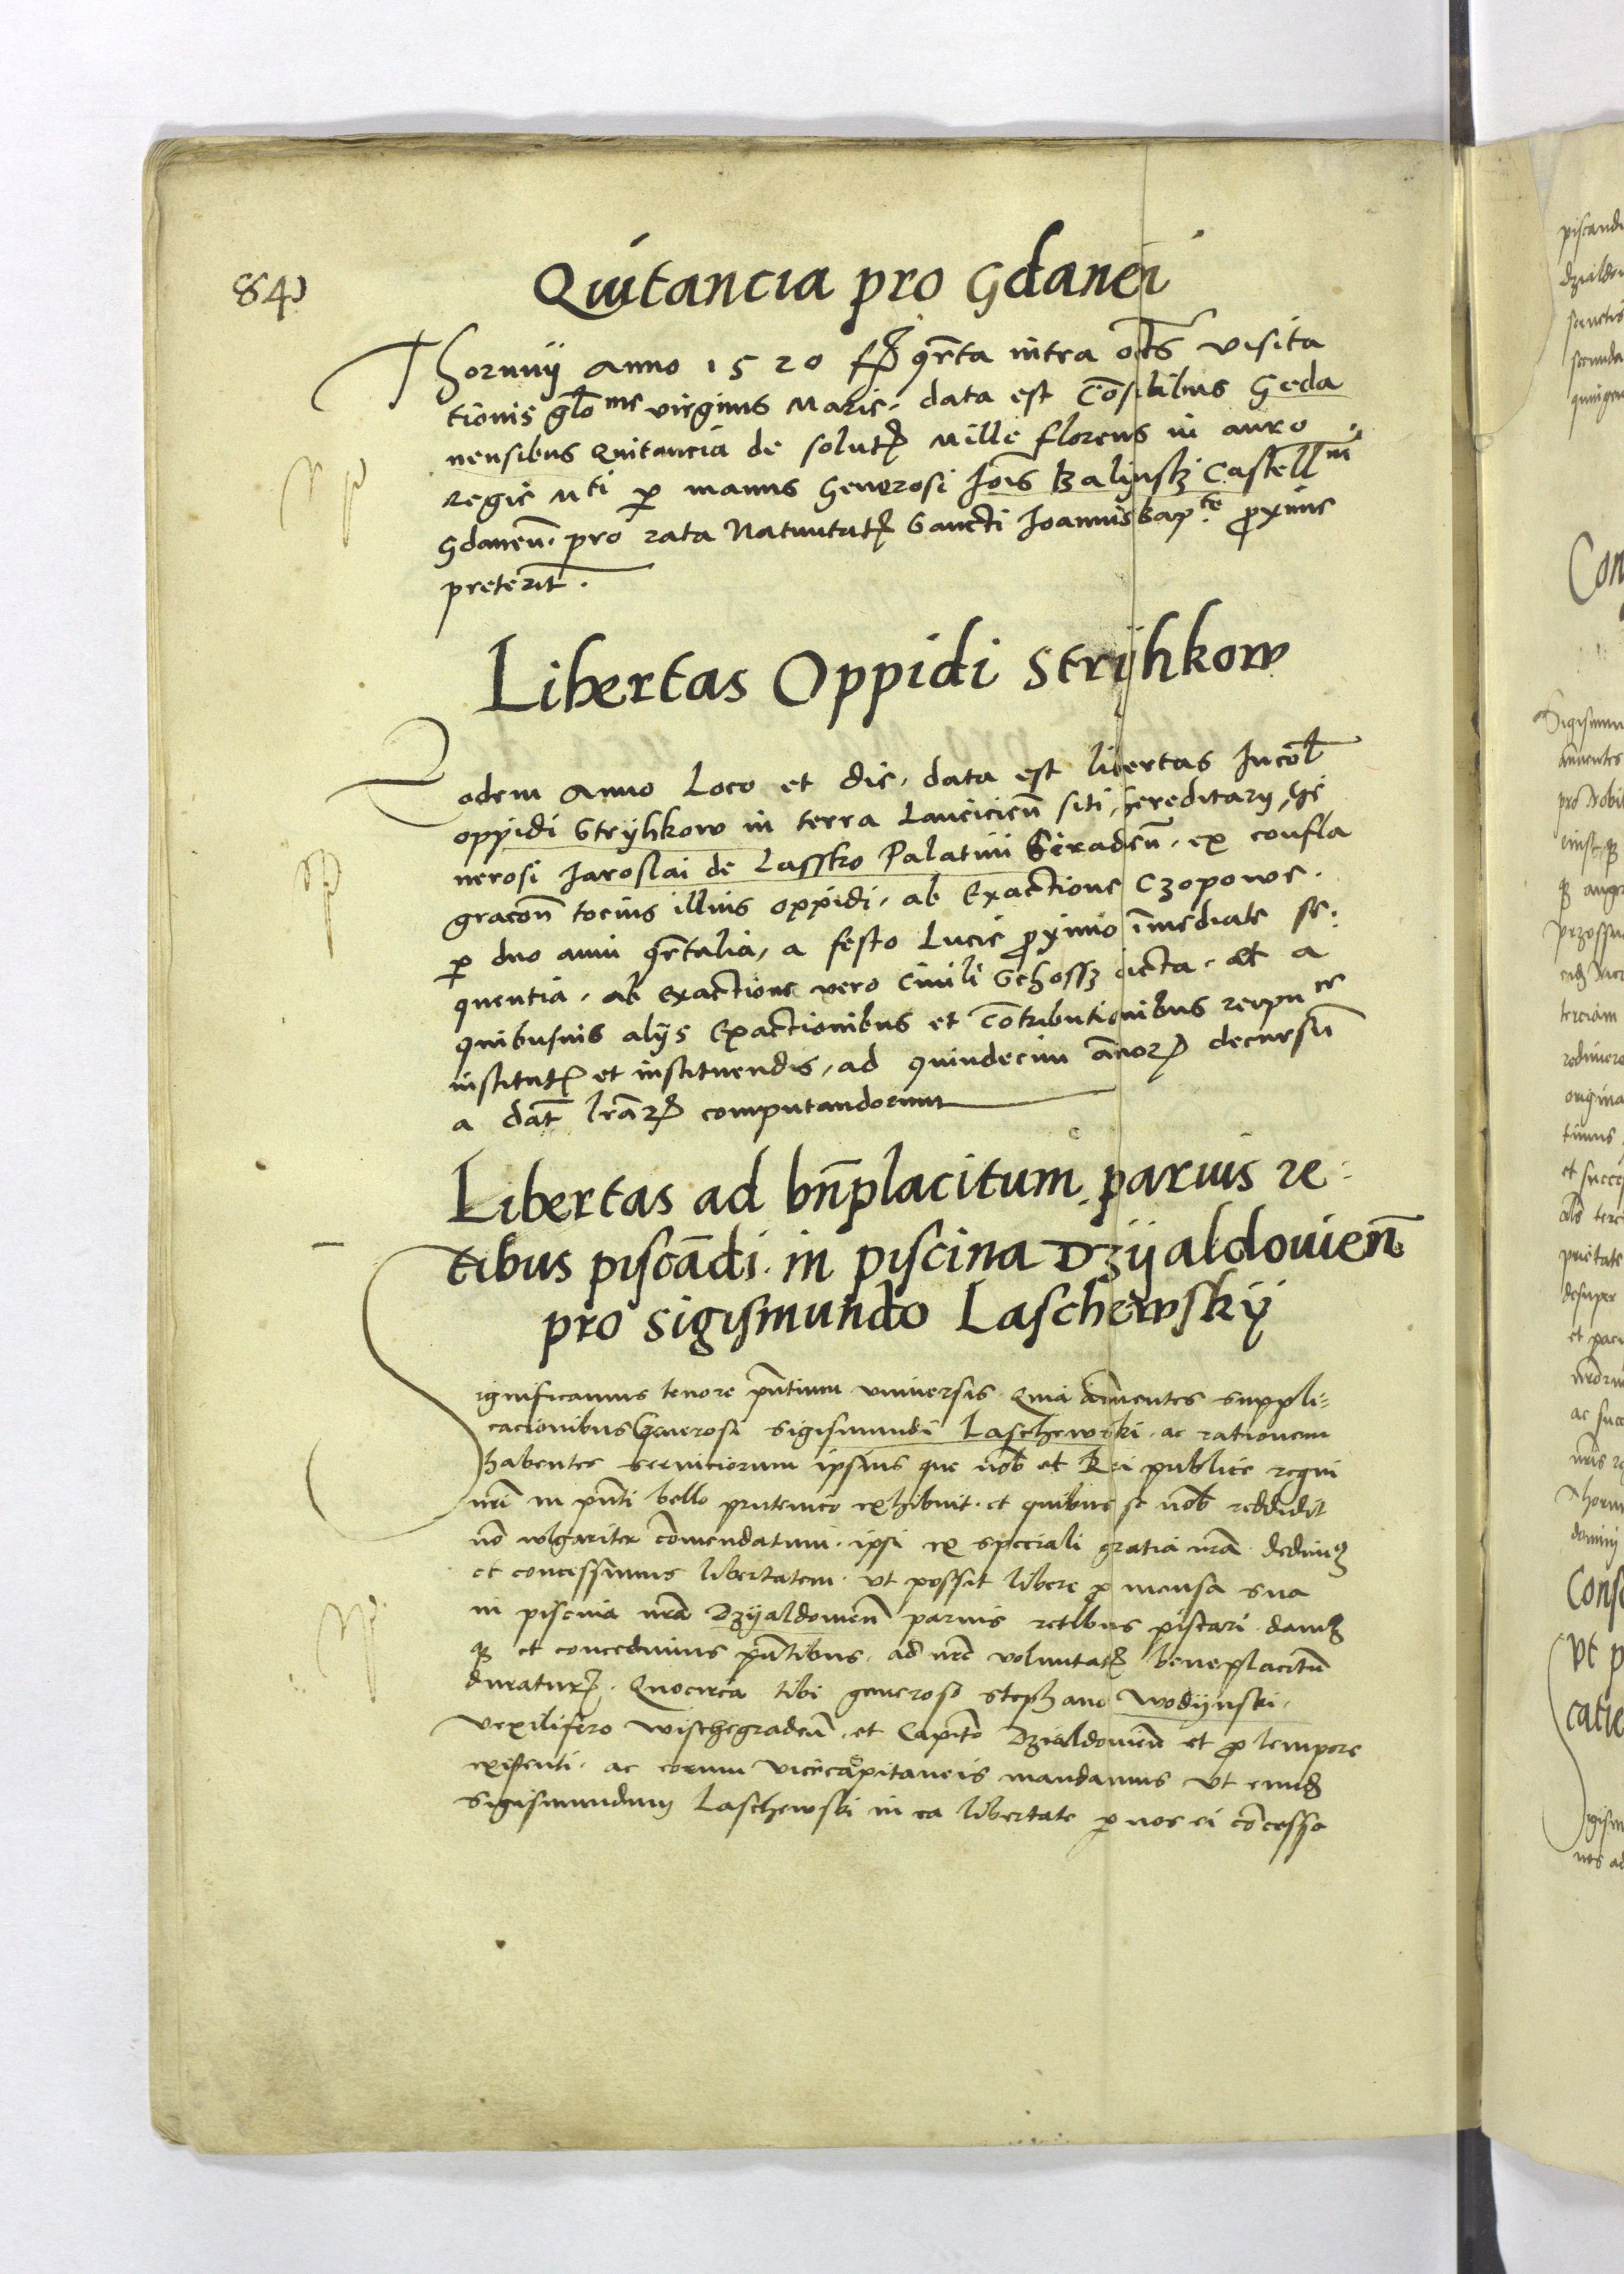 84
Quitancia pro Gdanen̄
Thorunij Anno 1520 fʒ q̄rta intra oct̄s visita
tionis glo᷑me virginis Marie. data est Cōsulibus Geda
nensibus Quitancia de solutʒ Mille florenis in auro
Regie Mti ꝑ manus Generosi Joīs Balijnskj Castellni
Gdanen̄. pro rata Natiuitatʒ Sancti Joannis Bapte ꝓxime
preterit̄.
Libertas Oppidi Strijhkow
Eodem Anno Loco et die. data est libertas Incol̄
oppidi Strijhkow in terra Lancicien̄ siti, hereditarij Ge
nerosi Jaroslai de Lassko Palatini Siradien̄. ex confla
gracōn̄ tocius illius oppidi. ab Exactione Czopowe.
ꝑ duo anni q̄rtalia, a festo Lucie ꝓximo īmediate se.
quentia. ab exactione vero Ciuili Schossʒ dicta. Et a
quibusuis alijs Exactionibus et Cōtributionibus
institutʒ et instituendis, ad quindecim ānorʒ decursū
a dat̄ lrārʒ computandorum
Libertas ad bn̄placitum paruis re
tibus piscādi. in piscina Dzijaldouien̄
pro Sigismundo Laschewskij
Significamus tenore pn̄tium vniuersis. Quia ānuentes suppli=
cacionibus Generosi Sigismundi Laschewski. ac rationem
habentes seruiciorum ipsius que nob̄ et Rei publice regni
nr̄i in pn̄ti bello prutenico exhibuit. et quibus se nob̄ reddidit
nō wlgariter cōmendatum. ipsi ex speciali gratia nrā dedimꝰ
et concessimus libertatem. vt possit libere ꝓ mensa sua
in piscina nrā Dzijaldouien̄ paruis retibus piscari. damꝰ
qʒ et concedimus pn̄tibus. ad nrē voluntatʒ beneplacitū
duraturʒ. Quocirca tibi generoso Stephano Wodijnski.
vexilifero Wischegradien̄. et Capitō Dzialdouien̄ et ꝓ tempore
existenti. ac eorum vicecapitaneis mandamus vt eundʒ
Sigismundum Laschewski in ea libertate ꝑ nos ei cōcessa